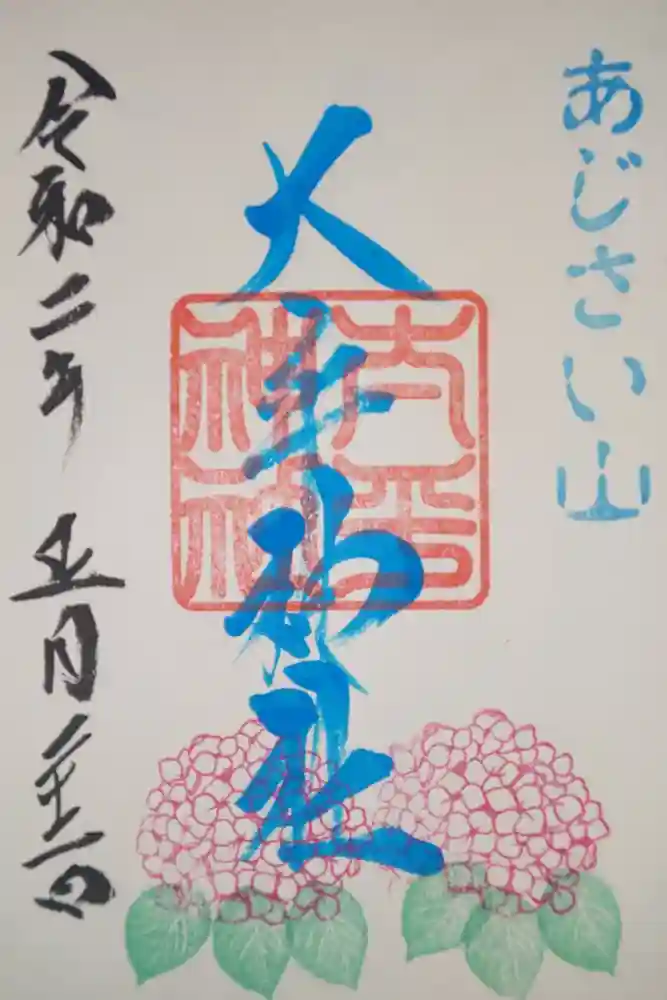 あじさい山
大平神社
大平
神社
令和二年 五月